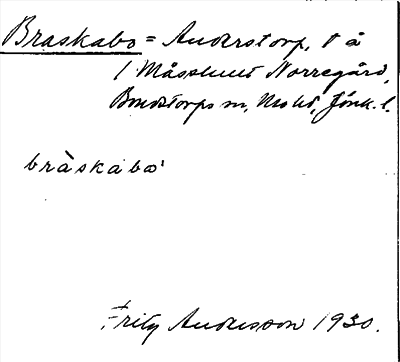 Braskabo = Anderstorp, t å
1 Måsshult Norregård,
Bondstorps sn, Mo hd, Jönk. l.
bràskabo'
Fritz Andersson 1930.